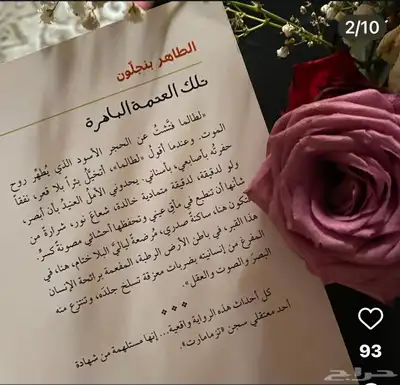 2/10
الطاهر بنجلّون
تلك العتمة الباهرة
«لطالما فتّشتُ عن الحجر الأسود الذي يُطهّر روح
الموت. وعندما أقولُ «لطالما»، أتخيَّلُ بئراً بلا قعر، نفقاً
حفرتُه بأصابعي، بأسناني، يحدوني الأملُ العنيدُ بأن أبصر،
ولو لدقيقة، لدقيقة متمادية خالدة، شعاعَ نور، شرارةً من
شأنها أن تنطبع في مآق عيني وتحفظها أحشائي مصونةً كسرّ.
لتكون هنا، ساكنةً صدري، مُرضعةً لياليَّ البلا ختام، هنا، في
هذا القبر، في باطن الأرض الرطبة، المفعمة برائحة الإنسان
المفرغ من إنسانيته بضربات معزقة تسلخ جلدَه، وتنتزع منه
البصرَ والصوت والعقل».
* * *
كل أحداث هذه الرواية واقعية... إنها مستلهمة من شهادة
أحد معتقلي سجن «تزمامارت».
93
حراج